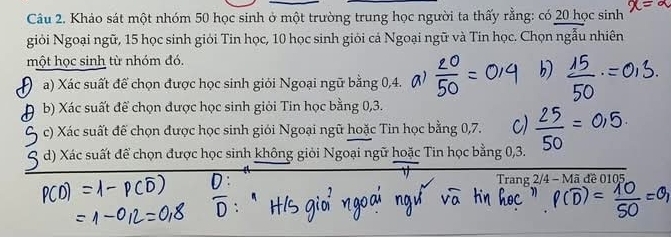 x=2
Câu 2. Khảo sát một nhóm 50 học sinh ở một trường trung học người ta thấy rằng: có 20 học sinh
giỏi Ngoại ngữ, 15 học sinh giỏi Tin học, 10 học sinh giỏi cả Ngoại ngữ và Tin học. Chọn ngẫu nhiên
một học sinh từ nhóm đó.
Đ a) Xác suất để chọn được học sinh giỏi Ngoại ngữ bằng 0,4. a) 20/50 = 0,4 b) 15/50 = 0,3.
Đ b) Xác suất để chọn được học sinh giỏi Tin học bằng 0,3.
S c) Xác suất để chọn được học sinh giỏi Ngoại ngữ hoặc Tin học bằng 0,7. c) 25/50 = 0,5.
S d) Xác suất để chọn được học sinh không giỏi Ngoại ngữ hoặc Tin học bằng 0,3.
Trang 2/4 – Mã đề 0105
P(D) = 1 - P(D̅) D:
= 1 - 0,2 = 0,8 D̅: " H/s giỏi ngoại ngữ và tin học ". P(D̅) = 10/50 = 0,